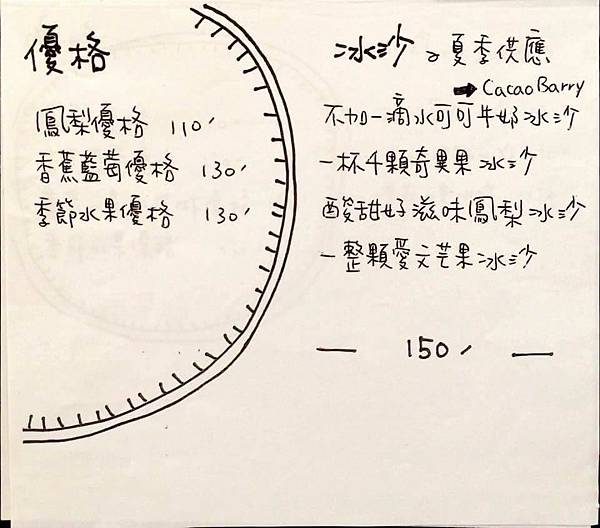 優格
鳳梨優格 110′
香蕉藍莓優格 130′
季節水果優格 130′
冰沙。夏季供應
➡ Cacao Barry
不加一滴水可可牛奶冰沙
一杯4顆奇異果冰沙
酸甜好滋味鳳梨冰沙
一整顆愛文芒果冰沙
— 150′ —